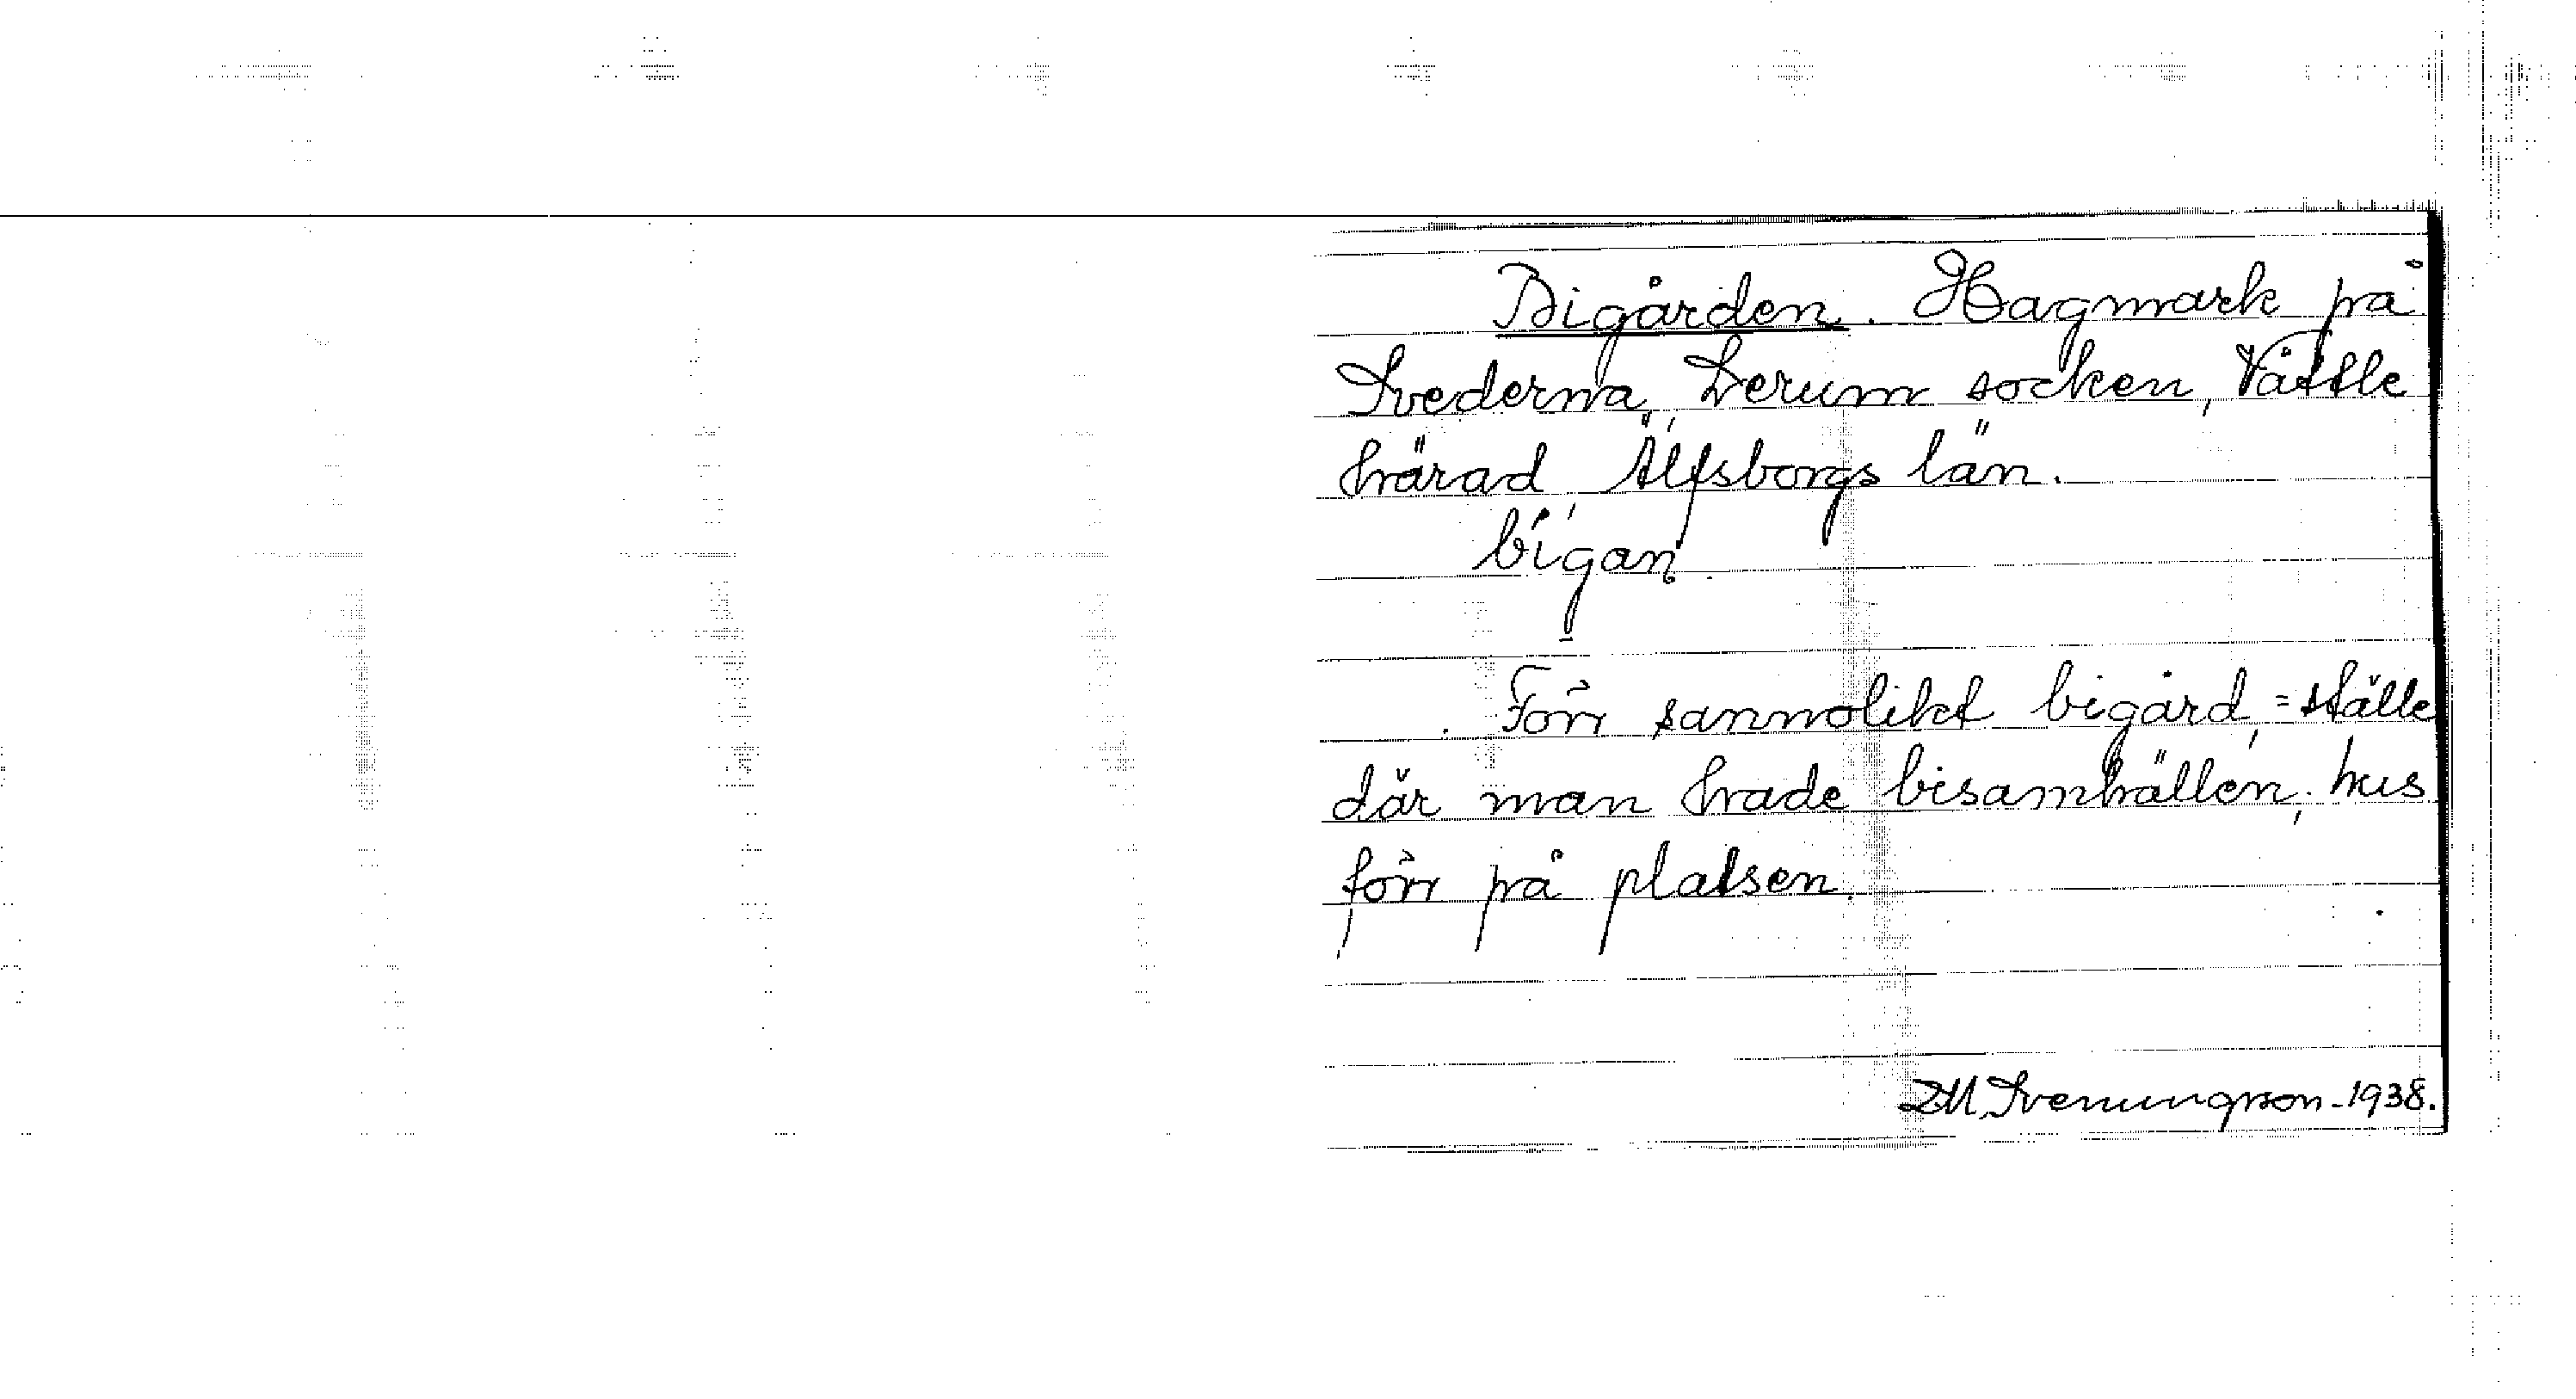 Bigården. Hagmark på
Svederna, Lerum socken, Vättle
härad, Älfsborgs län.
bígan
Förr sannolikt bigård, = ställe
där man hade bisamhällen; hus
förr på platsen.
DM Svenungsson - 1938.